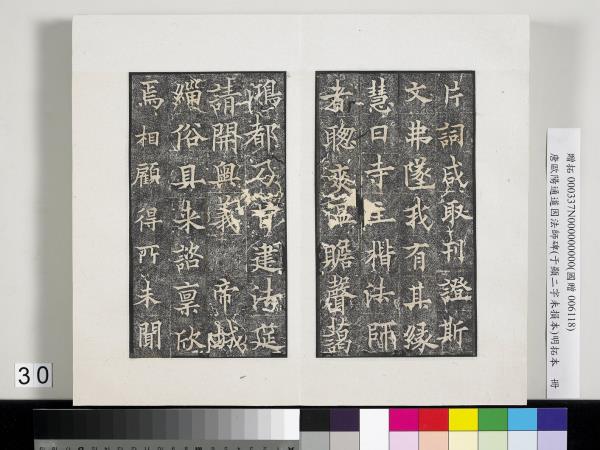 贈拓 000337N000000000(國贈 006118)
唐歐陽通道因法師碑(于顯二字未損本)明拓本 冊
片詞咸取刊證斯
文弗墜我有其緣
慧日寺主楷法師
者聰爽溫贍聲藹
鴻都乃首建法筵
請開奧義 帝城
緇俗具來諮稟欣
焉相顧得所未聞
30